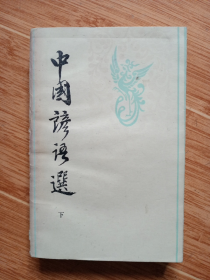 中國諺語選
下